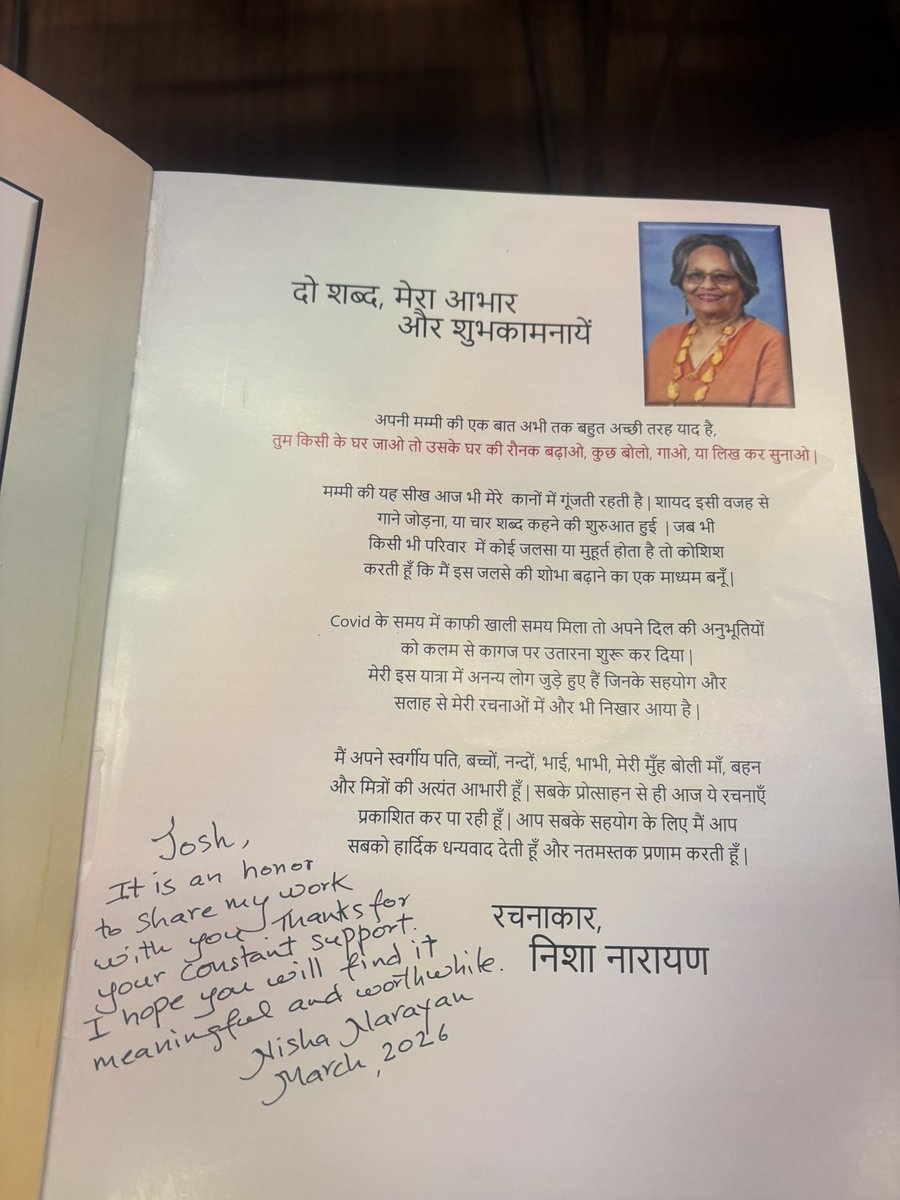 दो शब्द, मेरा आभार
और शुभकामनायें
अपनी मम्मी की एक बात अभी तक बहुत अच्छी तरह याद है,
तुम किसी के घर जाओ तो उसके घर की रौनक बढ़ाओ, कुछ बोलो, गाओ, या लिख कर सुनाओ |
मम्मी की यह सीख आज भी मेरे कानों में गूंजती रहती है | शायद इसी वजह से
गाने जोड़ना, या चार शब्द कहने की शुरुआत हुई | जब भी
किसी भी परिवार में कोई जलसा या मुहूर्त होता है तो कोशिश
करती हूँ कि मैं इस जलसे की शोभा बढ़ाने का एक माध्यम बनूँ |
Covid के समय में काफी खाली समय मिला तो अपने दिल की अनुभूतियों
को कलम से कागज पर उतारना शुरू कर दिया |
मेरी इस यात्रा में अनन्य लोग जुड़े हुए हैं जिनके सहयोग और
सलाह से मेरी रचनाओं में और भी निखार आया है |
मैं अपने स्वर्गीय पति, बच्चों, नन्दों, भाई, भाभी, मेरी मुँह बोली माँ, बहन
और मित्रों की अत्यंत आभारी हूँ | सबके प्रोत्साहन से ही आज ये रचनाएँ
प्रकाशित कर पा रही हूँ | आप सबके सहयोग के लिए मैं आप
सबको हार्दिक धन्यवाद देती हूँ और नतमस्तक प्रणाम करती हूँ |
रचनाकार,
निशा नारायण
Josh,
It is an honor
to share my work
with you. Thanks for
your constant support.
I hope you will find it
meaningful and worthwhile.
Nisha Narayan
March, 2026